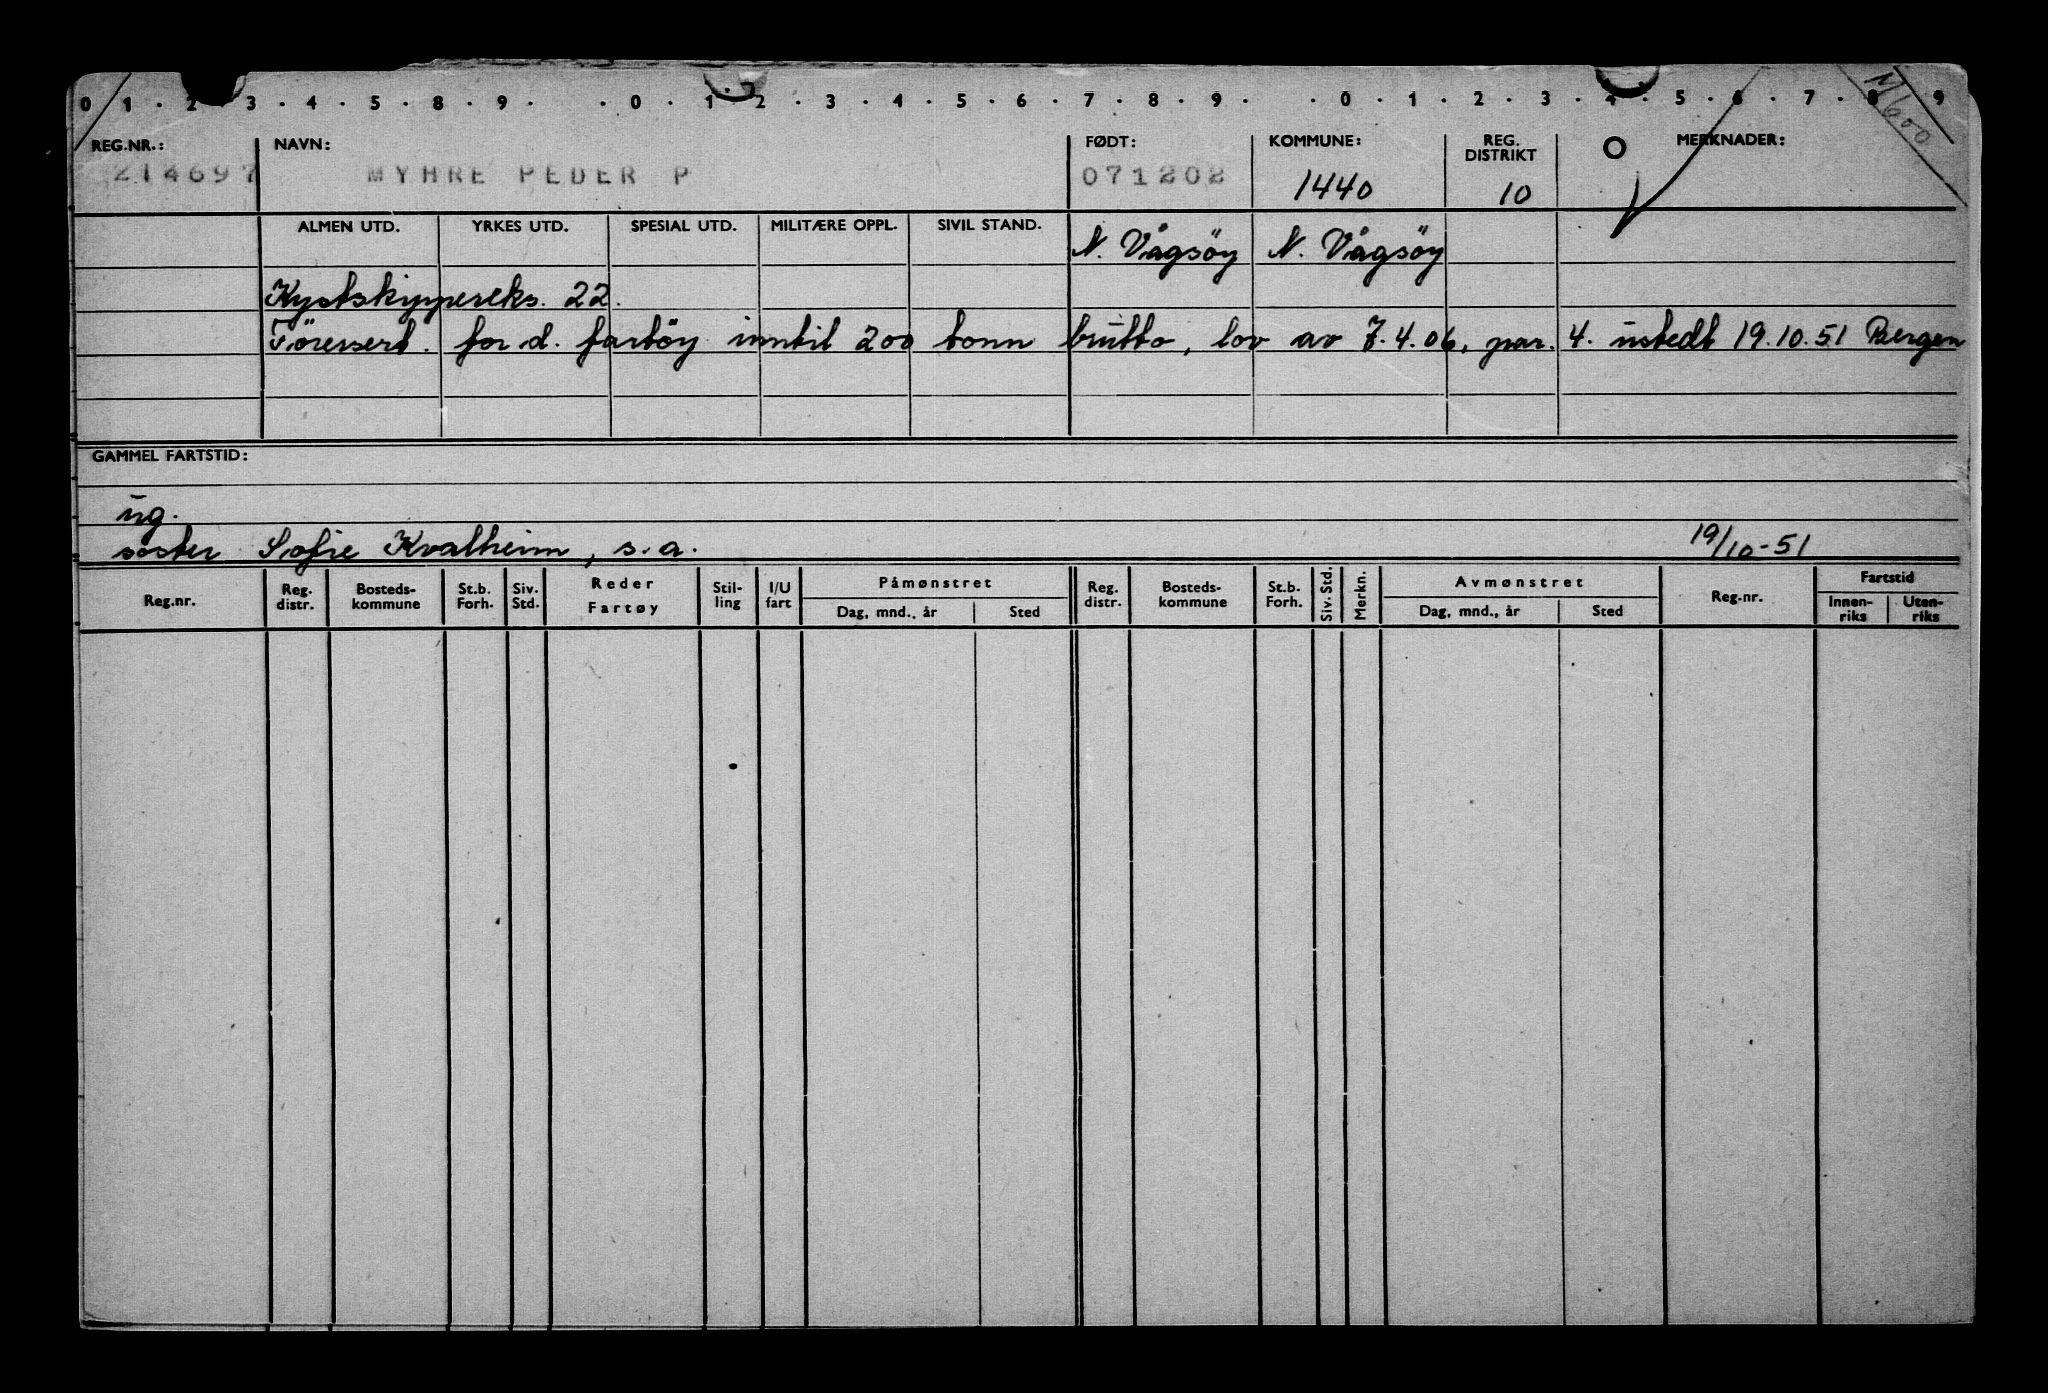 0 1 . 2 3 . 4 . 5 . 8 . 9 . . 0 . 1 2 . 3 . 4 . 5 . 6 . 7 . 8 . 9 . . 0 . 1 . 2 . 3 . 4 . 5 . 6 . 7 . 8 9
M600
REG.NR.: NAVN: FØDT: KOMMUNE: REG. DISTRIKT MERKNADER:
214697 MYHRE PEDER P 071202 1440 10
ALMEN UTD. YRKES UTD. SPESIAL UTD. MILITÆRE OPPL. SIVIL STAND.
N. Vågsöy N. Vågsöy
Kystskippereks. 22.
Försert. for d. fartöy inntil 200 tonn brutto, lov av 7.4.06, par. 4. ustedt 19.10.51 Bergen
GAMMEL FARTSTID:
ug.
söster Sofie Kvalheim, s.a. 19/10-51
Reg.nr. Reg. distr. Bosteds-kommune St.b. Forh. Siv. Std. Reder Fartøy Stil-ling I/U fart Påmønstret Reg. distr. Bosteds-kommune St.b. Forh. Siv. Std. Merkn. Avmønstret Reg.nr. Fartstid
Dag, mnd., år Sted Dag, mnd., år Sted Innen-riks Uten-riks